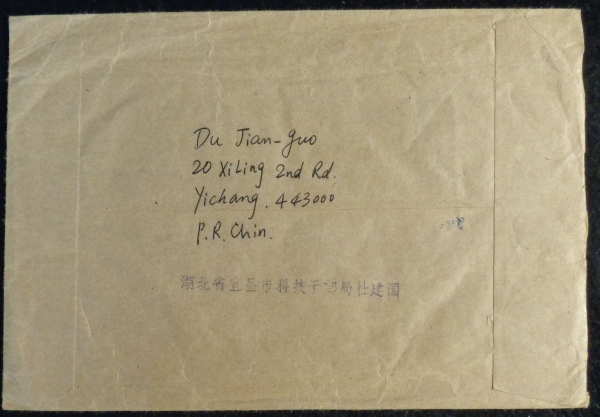 Du Jian-guo
20 XiLing 2nd Rd.
Yichang. 443000
P.R. Chin.
湖北省宜昌市科技干部局杜建国